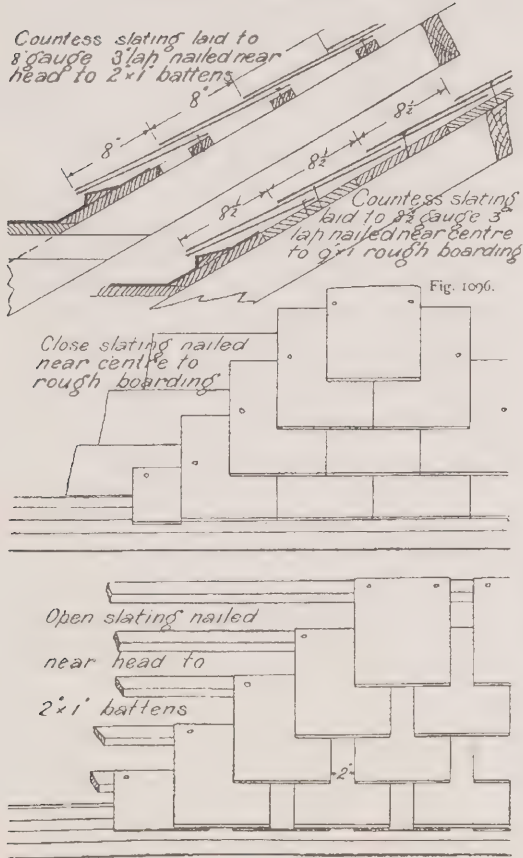 Countess slating laid to
8 gauge 3" lap nailed near
head to 2"×1" battens
8"
8"
8½"
8½"
8½"
Countess slating
laid to 8½ gauge 3"
lap nailed near centre
to 9×1 rough boarding
Fig. 1096.
Close slating nailed
near centre to
rough boarding
Open slating nailed
near head to
2"×1" battens
2"